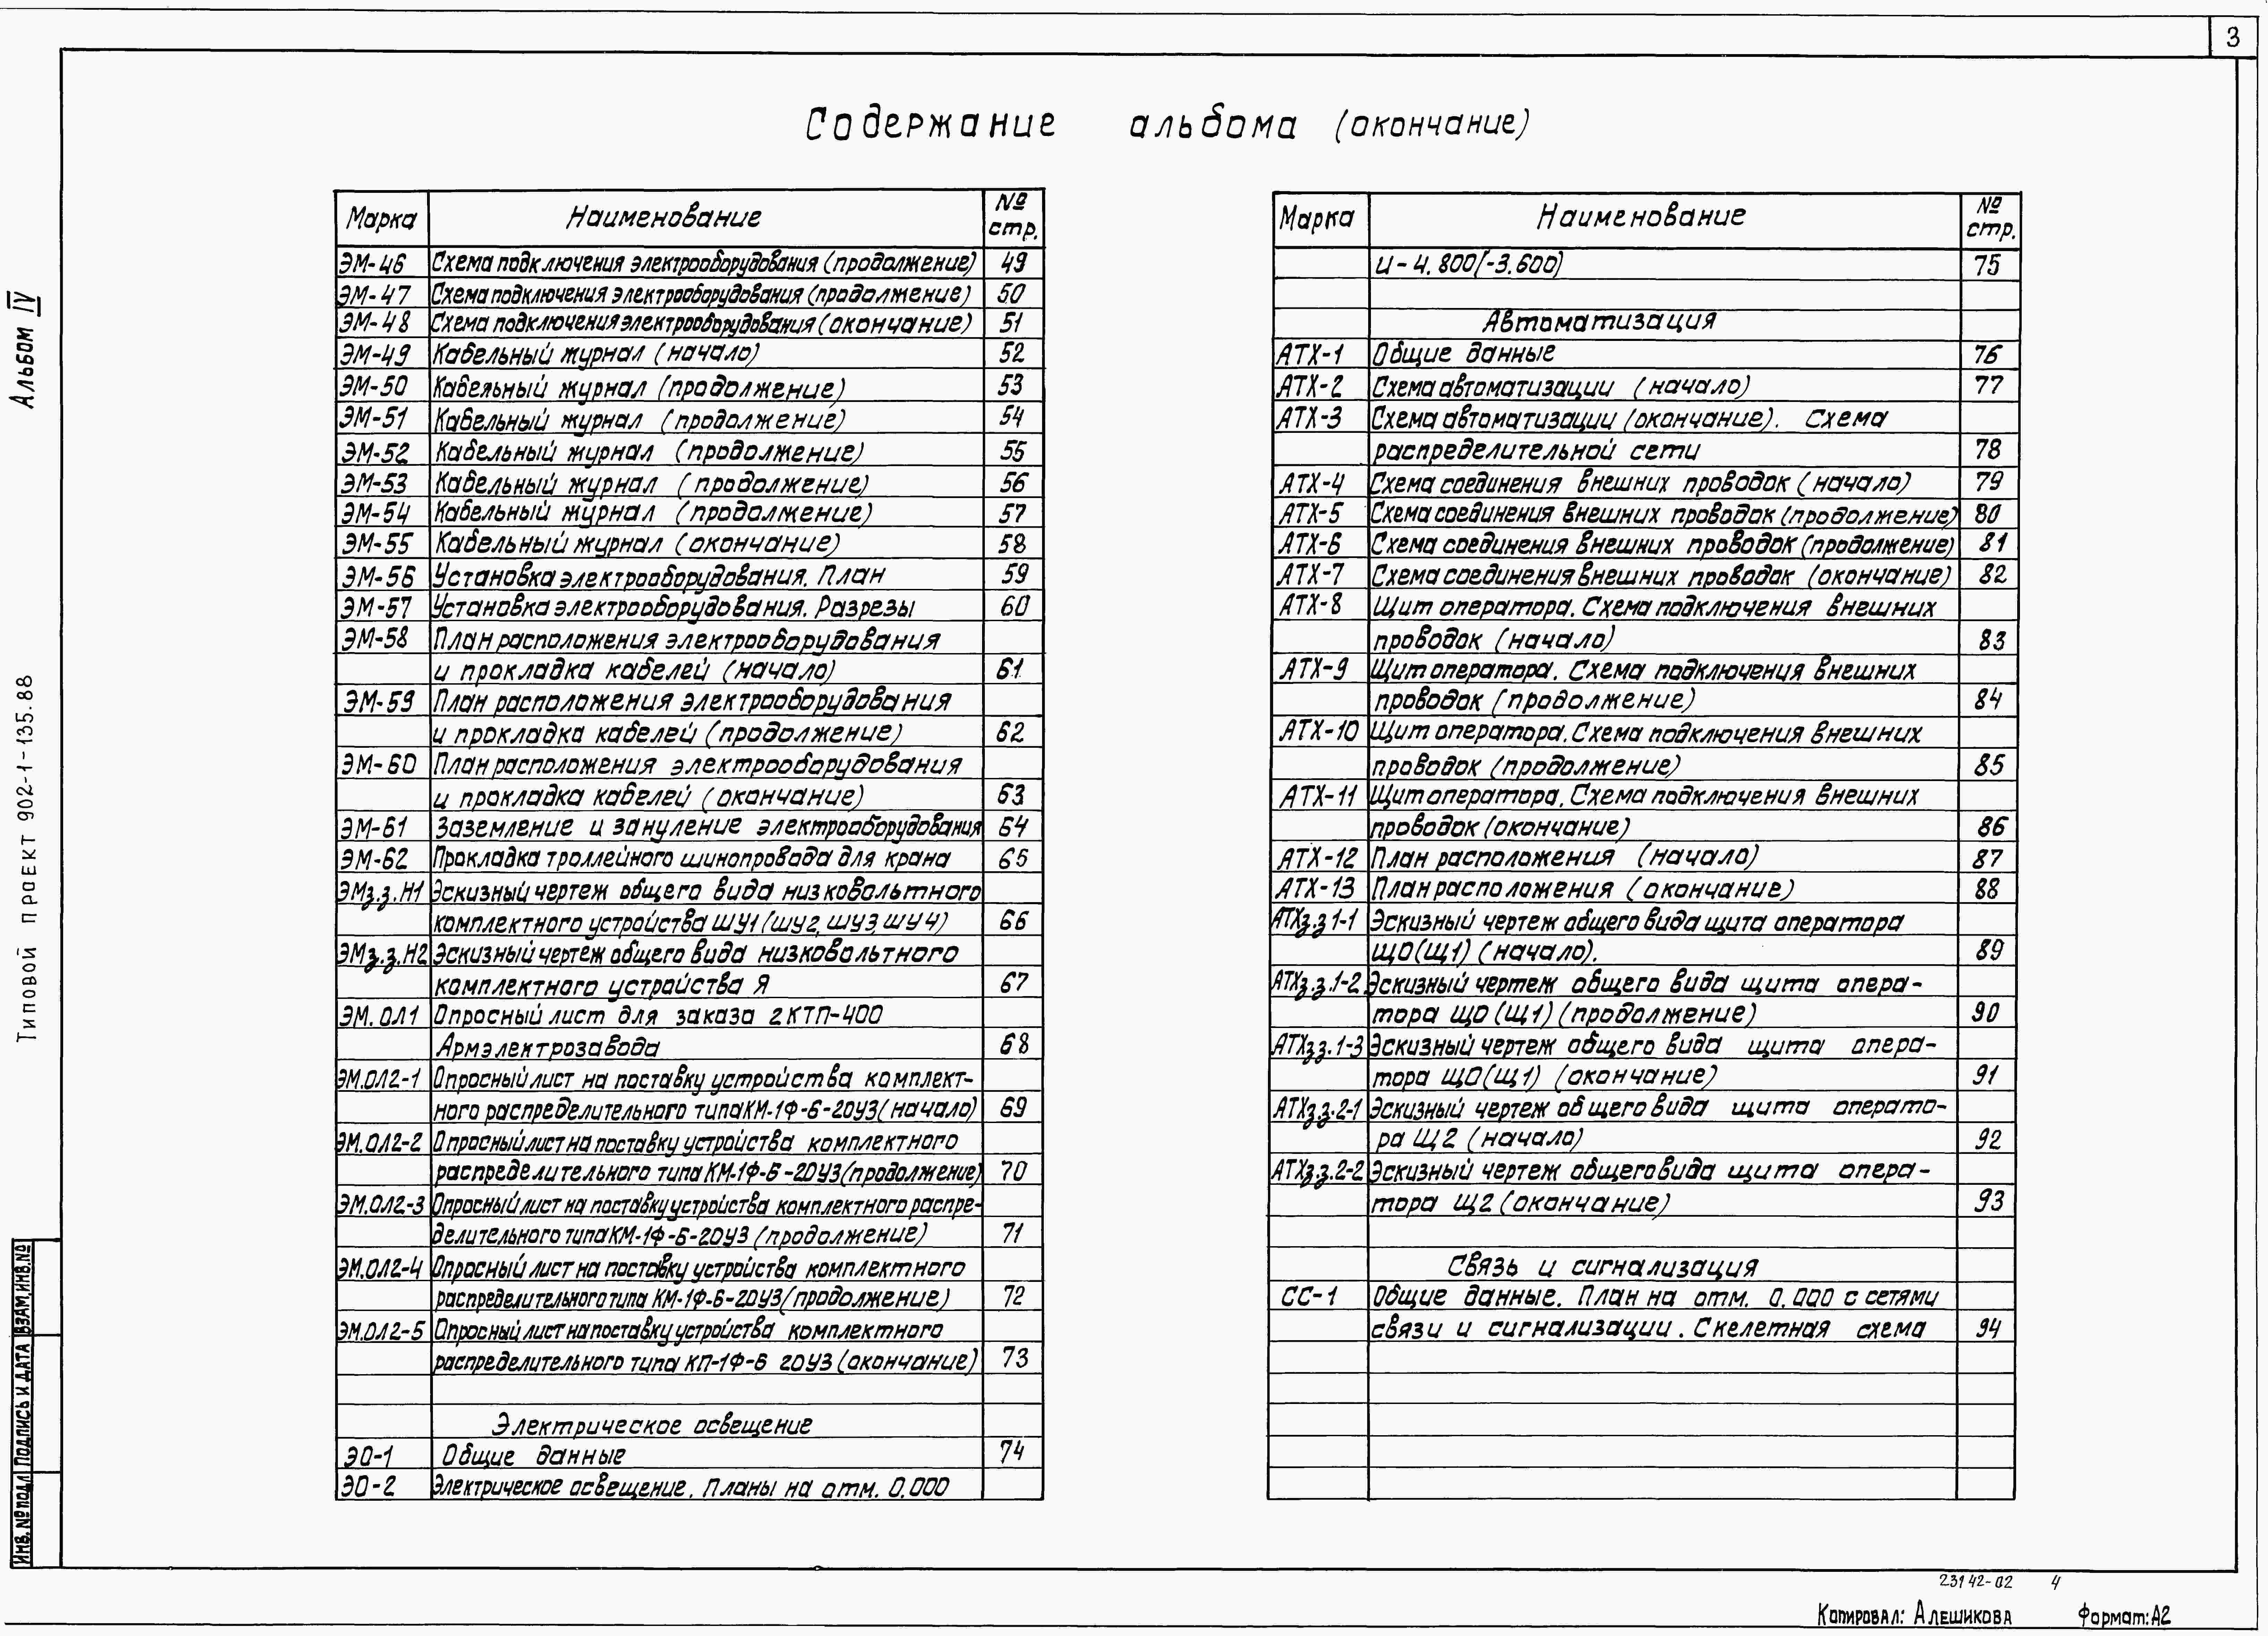 3
Содержание альбома (окончание)
Марка Наименование № стр.
ЭМ-46 Схема подключения электрооборудования (продолжение) 49
ЭМ-47 Схема подключения электрооборудования (продолжение) 50
ЭМ-48 Схема подключения электрооборудования (окончание) 51
ЭМ-49 Кабельный журнал (начало) 52
ЭМ-50 Кабельный журнал (продолжение) 53
ЭМ-51 Кабельный журнал (продолжение) 54
ЭМ-52 Кабельный журнал (продолжение) 55
ЭМ-53 Кабельный журнал (продолжение) 56
ЭМ-54 Кабельный журнал (продолжение) 57
ЭМ-55 Кабельный журнал (окончание) 58
ЭМ-56 Установка электрооборудования. План 59
ЭМ-57 Установка электрооборудования. Разрезы 60
ЭМ-58 План расположения электрооборудования
и прокладка кабелей (начало) 61
ЭМ-59 План расположения электрооборудования
и прокладка кабелей (продолжение) 62
ЭМ-60 План расположения электрооборудования
и прокладка кабелей (окончание) 63
ЭМ-61 Заземление и зануление электрооборудования 64
ЭМ-62 Прокладка троллейного шинопровода для крана 65
ЭМз.з.Н1 Эскизный чертеж общего вида низковольтного
комплектного устройства ШУ1 (ШУ2, ШУ3, ШУ4) 66
ЭМз.з.Н2 Эскизный чертеж общего вида низковольтного
комплектного устройства Я 67
ЭМ.ОЛ1 Опросный лист для заказа 2КТП-400
Армэлектрозавода 68
ЭМ.ОЛ2-1 Опросный лист на поставку устройства комплект-
ного распределительного типа КМ-1Ф-6-20У3 (начало) 69
ЭМ.ОЛ2-2 Опросный лист на поставку устройства комплектного
распределительного типа КМ-1Ф-6-20У3 (продолжение) 70
ЭМ.ОЛ2-3 Опросный лист на поставку устройства комплектного распре-
делительного типа КМ-1Ф-6-20У3 (продолжение) 71
ЭМ.ОЛ2-4 Опросный лист на поставку устройства комплектного
распределительного типа КМ-1Ф-6-20У3 (продолжение) 72
ЭМ.ОЛ2-5 Опросный лист на поставку устройства комплектного
распределительного типа КП-1Ф-6 20У3 (окончание) 73
Электрическое освещение
ЭО-1 Общие данные 74
ЭО-2 Электрическое освещение. Планы на отм. 0.000
Марка Наименование № стр.
и -4.800(-3.600) 75
Автоматизация
АТХ-1 Общие данные 76
АТХ-2 Схема автоматизации (начало) 77
АТХ-3 Схема автоматизации (окончание). Схема
распределительной сети 78
АТХ-4 Схема соединения внешних проводок (начало) 79
АТХ-5 Схема соединения внешних проводок (продолжение) 80
АТХ-6 Схема соединения внешних проводок (продолжение) 81
АТХ-7 Схема соединения внешних проводок (окончание) 82
АТХ-8 Щит оператора. Схема подключения внешних
проводок (начало) 83
АТХ-9 Щит оператора. Схема подключения внешних
проводок (продолжение) 84
АТХ-10 Щит оператора. Схема подключения внешних
проводок (продолжение) 85
АТХ-11 Щит оператора. Схема подключения внешних
проводок (окончание) 86
АТХ-12 План расположения (начало) 87
АТХ-13 План расположения (окончание) 88
АТХз.з 1-1 Эскизный чертеж общего вида щита оператора
ЩО(Щ1) (начало). 89
АТХз.з.1-2 Эскизный чертеж общего вида щита опера-
тора ЩО (Щ1) (продолжение) 90
АТХз.з.1-3 Эскизный чертеж общего вида щита опера-
тора ЩО(Щ1) (окончание) 91
АТХз.з.2-1 Эскизный чертеж общего вида щита операто-
ра Щ2 (начало) 92
АТХз.з.2-2 Эскизный чертеж общего вида щита опера-
тора Щ2 (окончание) 93
Связь и сигнализация
СС-1 Общие данные. План на отм. 0.000 с сетями
связи и сигнализации. Скелетная схема 94
Альбом IV
Типовой проект 902-1-135.88
Инв.№подл Подпись и дата Взам,инв.№
23142-02 4
Копировал: Алешикова Формат:А2